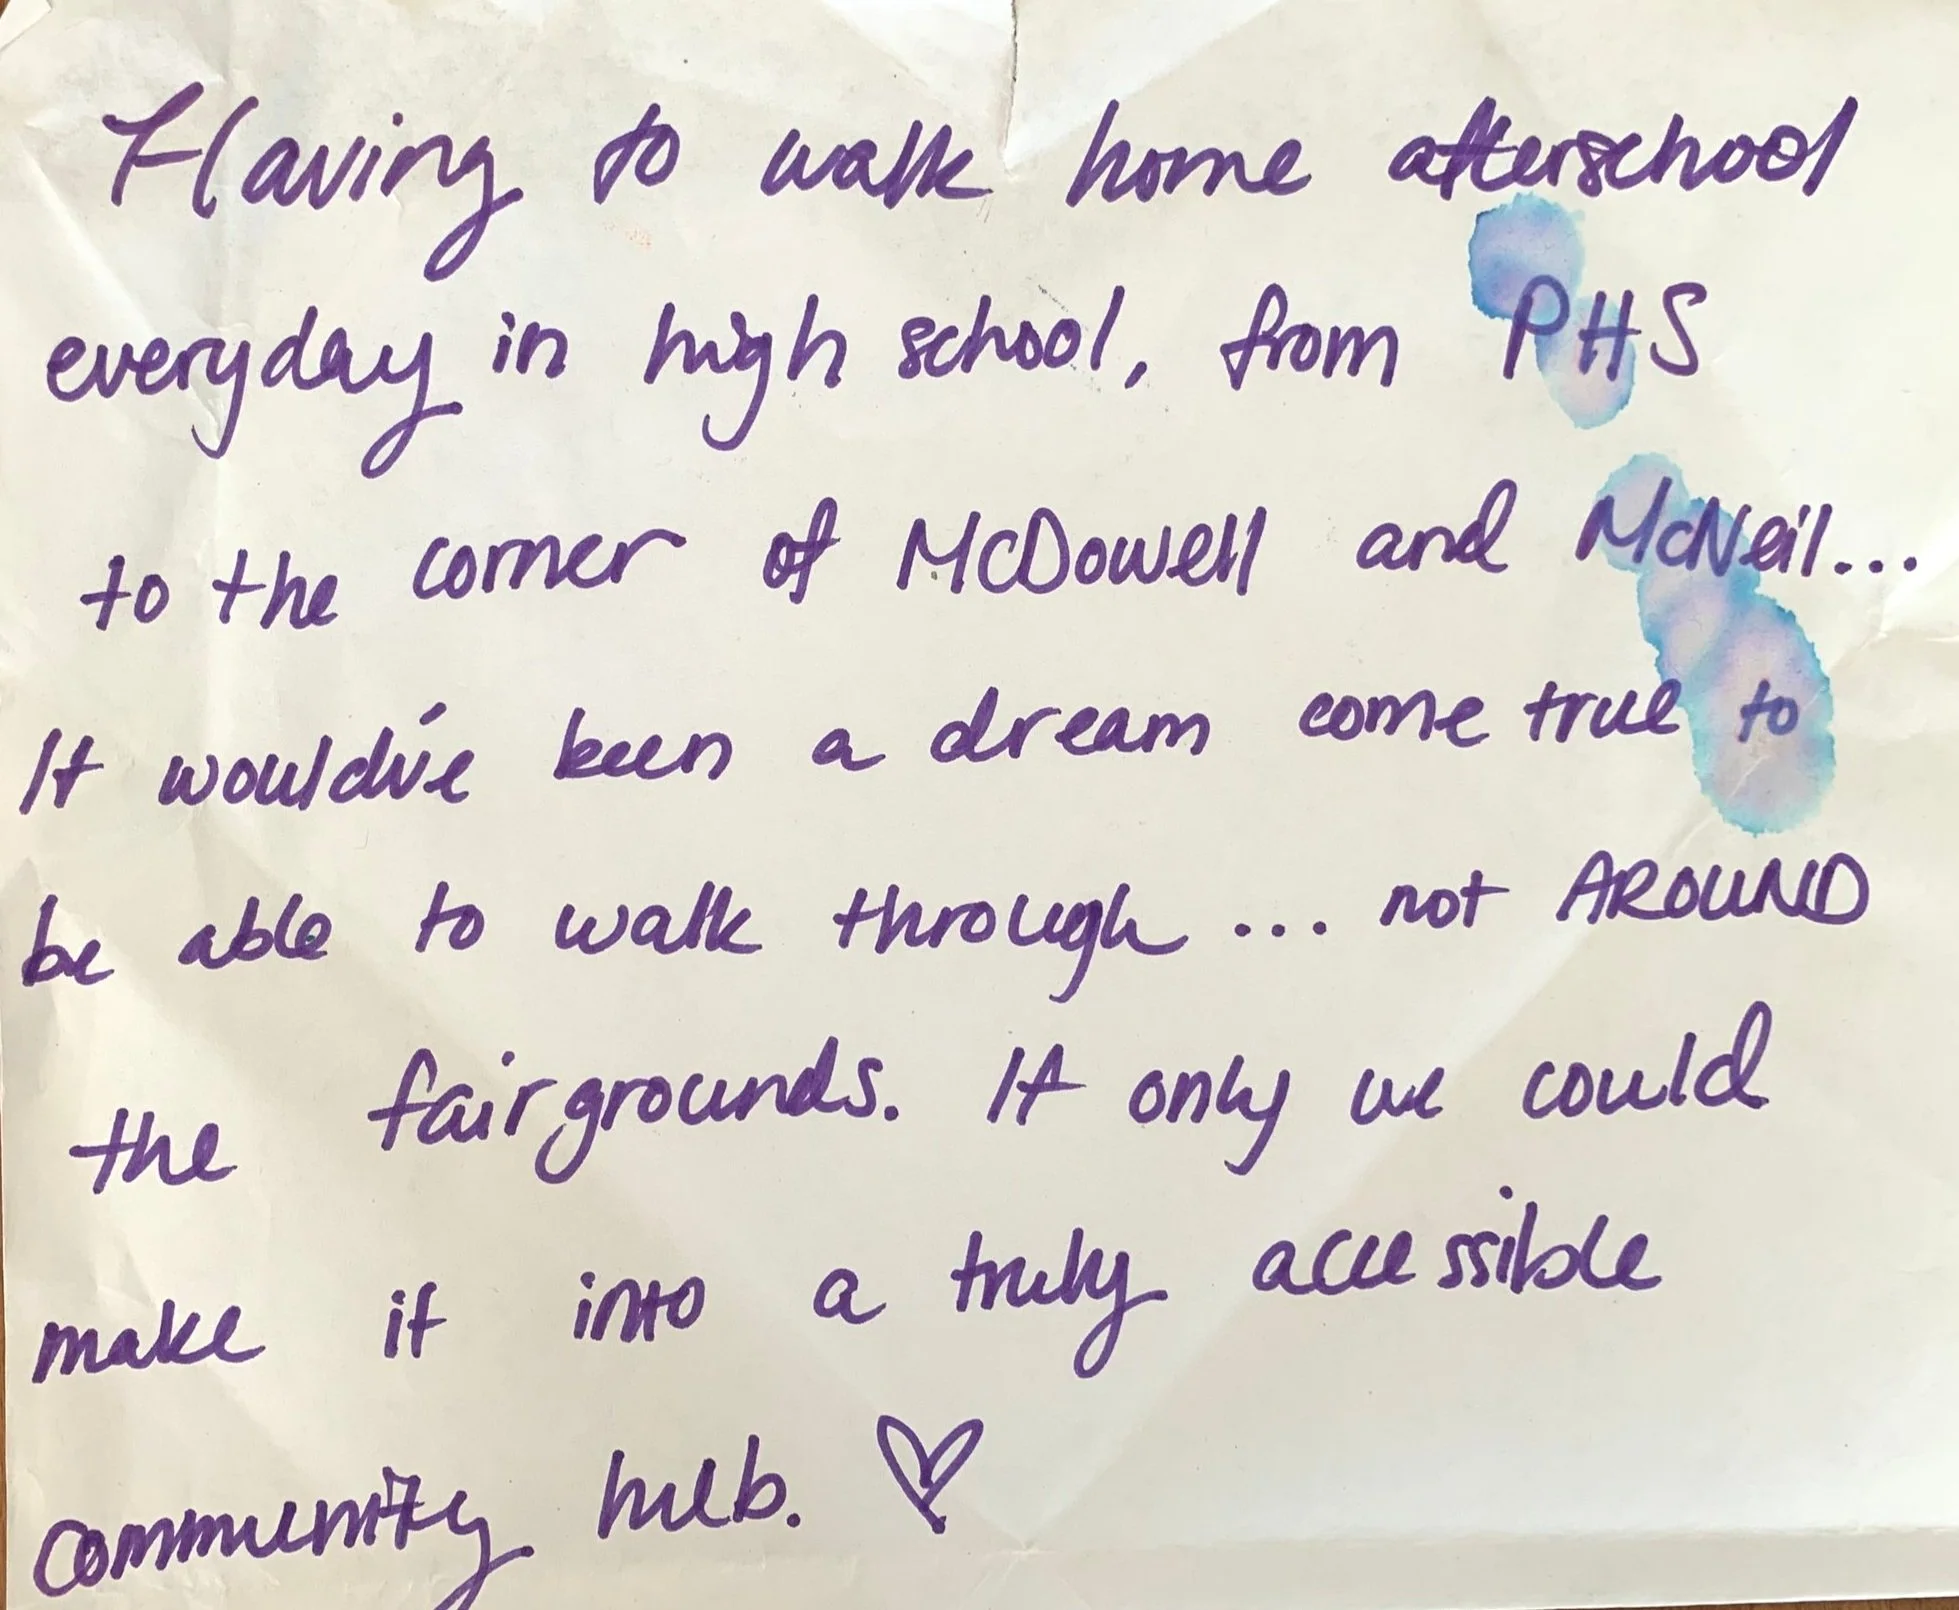 Having to walk home afterschool
everyday in high school, from PHS
to the corner of McDowell and McNeil...
It would've been a dream come true to
be able to walk through... not AROUND
the fairgrounds. If only we could
make it into a truly accessible
community hub. ♡